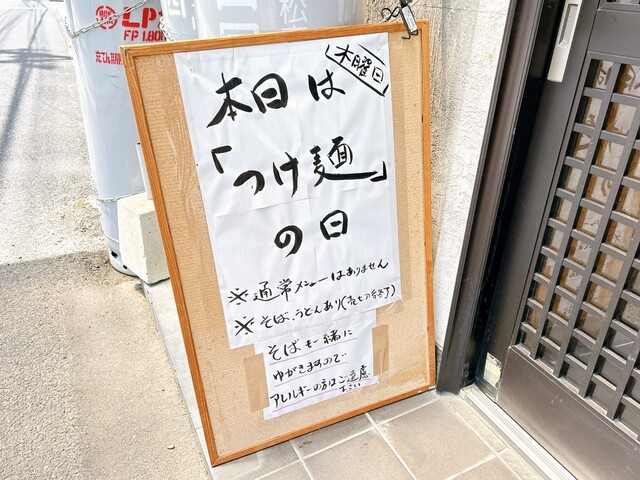 木曜日
本日は
「つけ麺」
の日
※通常メニューはありません
※そば、うどんあり(売切れ終了)
そばも一緒に
ゆがきますので
アレルギーの方はご遠慮
下さい
LPガス
FP 1.80
松